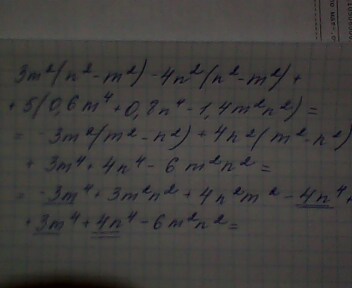 3m²(n²-m²)-4n²(n²-m²)+
+5(0,6m⁴+0,8n⁴-1,4m²n²)=
= -3m²(m²-n²)+4n²(m²-n²)
+3m⁴+4n⁴-6m²n²=
= -3m⁴+3m²n²+4n²m²-4n⁴+
+3m⁴+4n⁴-6m²n²=